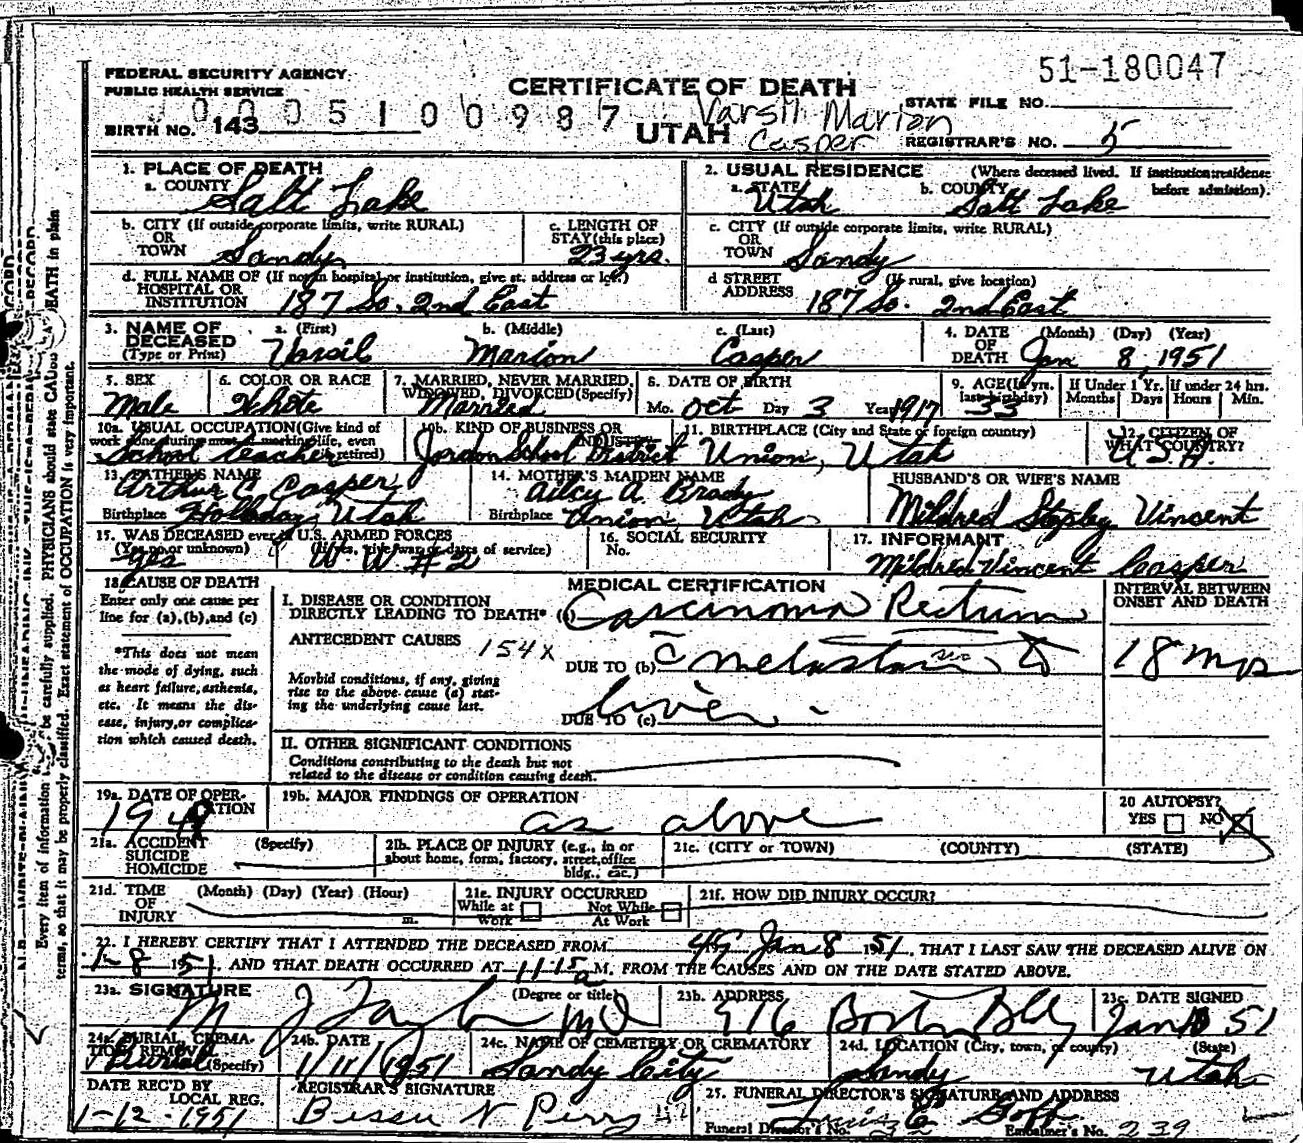 51-180047
FEDERAL SECURITY AGENCY
PUBLIC HEALTH SERVICE
CERTIFICATE OF DEATH
STATE FILE NO.
0 0 0 5 1 0 0 9 8 7
Varsil Marion Casper
BIRTH NO. 143
UTAH
REGISTRAR'S NO. 5
1. PLACE OF DEATH
a. COUNTY Salt Lake
2. USUAL RESIDENCE (Where deceased lived. If institution: residence before admission).
a. STATE Utah b. COUNTY Salt Lake
b. CITY (If outside corporate limits, write RURAL) OR TOWN Sandy
c. LENGTH OF STAY (this place) 23 yrs.
c. CITY (If outside corporate limits, write RURAL) OR TOWN Sandy
d. FULL NAME OF (If not in hospital or institution, give st. address or loc.) HOSPITAL OR INSTITUTION 187 So. 2nd East
d STREET ADDRESS (If rural, give location) 187 So. 2nd East
3. NAME OF DECEASED (Type or Print)
a. (First) Varsil b. (Middle) Marion c. (Last) Casper
4. DATE OF DEATH (Month) (Day) (Year) Jan 8, 1951
5. SEX Male
6. COLOR OR RACE White
7. MARRIED, NEVER MARRIED, WIDOWED, DIVORCED (Specify) Married
8. DATE OF BIRTH Mo. Oct Day 3 Year 1917
9. AGE (In yrs. last birthday) 33
If Under 1 Yr. Months Days
If under 24 hrs. Hours Min.
10a. USUAL OCCUPATION (Give kind of work done during most of working life, even if retired) School teacher
10b. KIND OF BUSINESS OR INDUSTRY Jordan School District
11. BIRTHPLACE (City and State or foreign country) Union, Utah
12. CITIZEN OF WHAT COUNTRY? U.S.A.
13. FATHER'S NAME Arthur Casper
Birthplace Holladay, Utah
14. MOTHER'S MAIDEN NAME A. Brady
Birthplace Union, Utah
HUSBAND'S OR WIFE'S NAME
Mildred Vincent
15. WAS DECEASED ever in U.S. ARMED FORCES
(Yes, no or unknown) (If yes, give war or dates of service)
Yes W W #2
16. SOCIAL SECURITY No.
17. INFORMANT
Mildred Vincent Casper
18. CAUSE OF DEATH
Enter only one cause per line for (a), (b), and (c)
*This does not mean the mode of dying, such as heart failure, asthenia, etc. It means the disease, injury, or complication which caused death.
MEDICAL CERTIFICATION
INTERVAL BETWEEN ONSET AND DEATH
I. DISEASE OR CONDITION DIRECTLY LEADING TO DEATH* (a) Carcinoma Rectum
ANTECEDENT CAUSES 154X
Morbid conditions, if any, giving rise to the above cause (a) stating the underlying cause last.
DUE TO (b) c metastasis to
18 mos
DUE TO (c) liver -
II. OTHER SIGNIFICANT CONDITIONS
Conditions contributing to the death but not related to the disease or condition causing death.
19a. DATE OF OPERATION 1949
19b. MAJOR FINDINGS OF OPERATION
as above
20 AUTOPSY? YES NO X
21a. ACCIDENT SUICIDE HOMICIDE (Specify)
21b. PLACE OF INJURY (e.g., in or about home, form, factory, street, office bldg., etc.)
21c. (CITY or TOWN) (COUNTY) (STATE)
21d. TIME OF INJURY (Month) (Day) (Year) (Hour) m.
21e. INJURY OCCURRED While at Work Not While At Work
21f. HOW DID INJURY OCCUR?
22. I HEREBY CERTIFY THAT I ATTENDED THE DECEASED FROM 49 Jan 8 1951, THAT I LAST SAW THE DECEASED ALIVE ON
1-8 1951, AND THAT DEATH OCCURRED AT 11:15 a M. FROM THE CAUSES AND ON THE DATE STATED ABOVE.
23a. SIGNATURE (Degree or title)
M J Taylor MD
23b. ADDRESS
916 Boston Bldg
23c. DATE SIGNED
Jan 51
24a. BURIAL, CREMATION, REMOVAL (Specify) Burial
24b. DATE 1/11/1951
24c. NAME OF CEMETERY OR CREMATORY Sandy City
24d. LOCATION (City, town, or county) (State) Sandy Utah
DATE REC'D BY LOCAL REG. 1-12-1951
REGISTRAR'S SIGNATURE
25. FUNERAL DIRECTOR'S SIGNATURE AND ADDRESS
E Goff
Funeral Director's No. Embalmer's No. 239
Every item of information be carefully supplied. PHYSICIANS should state CAUSE DEATH in plain
terms, so that it may be properly classified. Exact statement of OCCUPATION is very important.